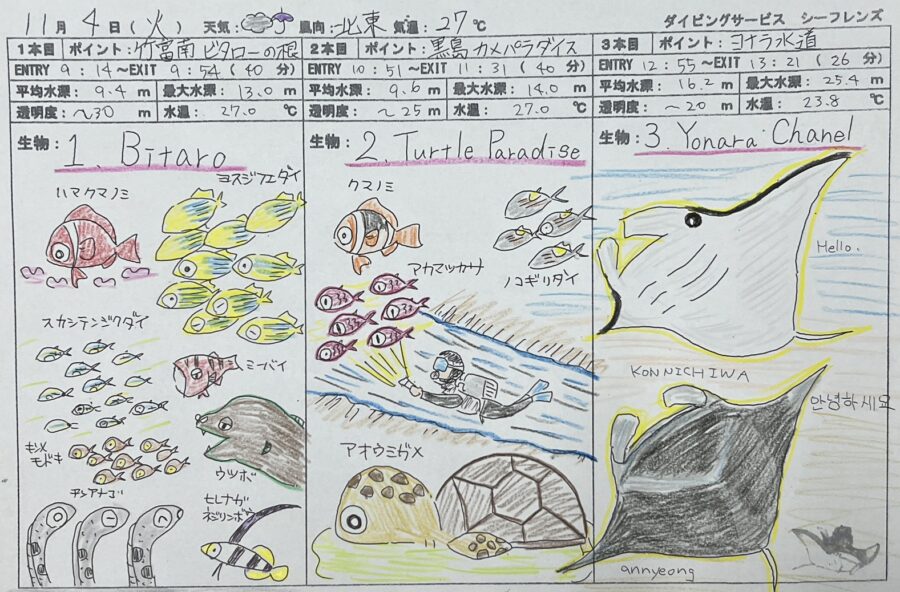 11月 4日(火) 天気: 風向:北東 気温:27℃ ダイビングサービス シーフレンズ
1本目 ポイント:竹富南 ビタローの根
ENTRY 9:14～EXIT 9:54(40分)
平均水深:9.4m 最大水深:13.0m
透明度:～30m 水温:27.0℃
生物:1. Bitaro
ハマクマノミ
ヨスジフエダイ
スカシテンジクダイ
ミーバイ
キンメモドキ
ウツボ
チンアナゴ
ヒレナガ
ネジリンボウ
2本目 ポイント:黒島 カメパラダイス
ENTRY 10:51～EXIT 11:31(40分)
平均水深:9.6m 最大水深:14.0m
透明度:～25m 水温:27.0℃
生物:2. Turtle Paradise
クマノミ
アカマツカサ
ノコギリダイ
アオウミガメ
3本目 ポイント:ヨナラ水道
ENTRY 12:55～EXIT 13:21(26分)
平均水深:16.2m 最大水深:25.4m
透明度:～20m 水温:23.8℃
生物:3. Yonara Chanel
Hello.
KONNICHIWA
안녕하세요
annyeong